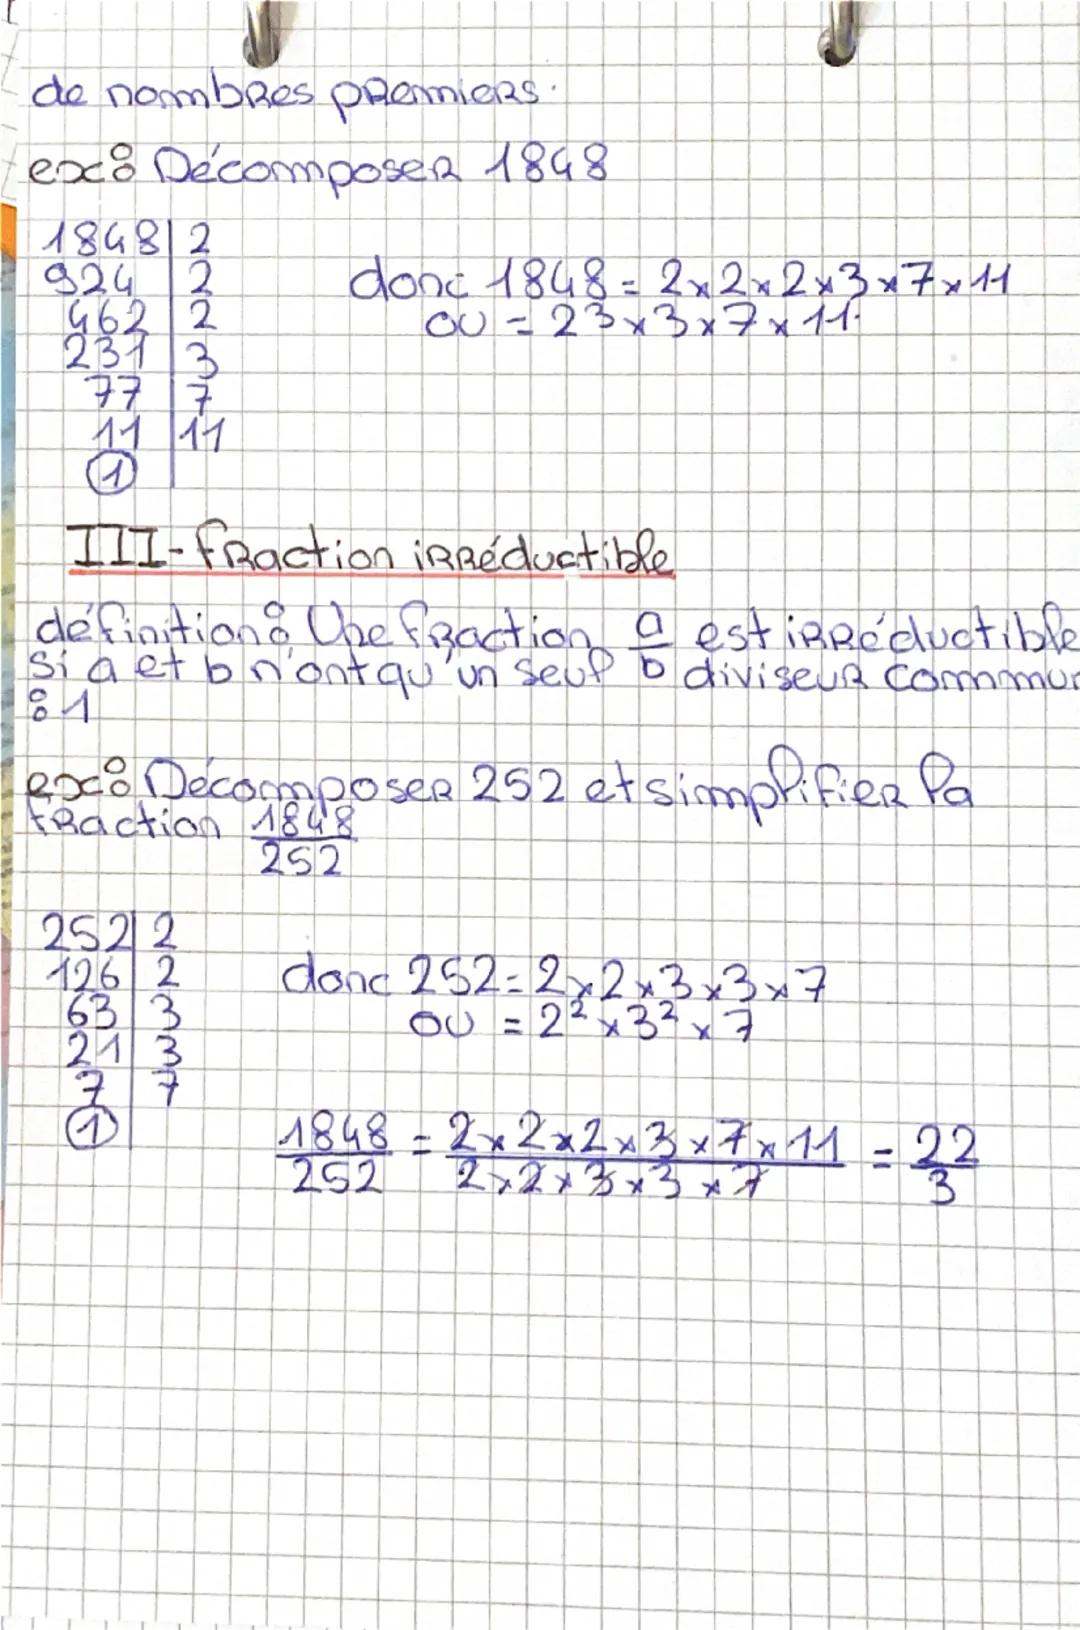 de nombres premiers.
ex: Décomposer 1848
1848 | 2
924 | 2
462 | 2
231 | 3
77 | 7
11 | 11
1
donc 1848 = 2 x 2 x 2 x 3 x 7 x 11
ou = 2³ x 3 x 7 x 11.
III - fraction irréductible
définition: Une fraction a/b est irréductible
si a et b n'ont qu'un seul diviseur commun
: 1
ex: Décomposer 252 et simplifier la
fraction 1848/252
252 | 2
126 | 2
63 | 3
21 | 3
7 | 7
1
donc 252 = 2 x 2 x 3 x 3 x 7
ou = 2² x 3² x 7
1848/252 = 2 x 2 x 2 x 3 x 7 x 11 / 2 x 2 x 3 x 3 x 7 = 22/3